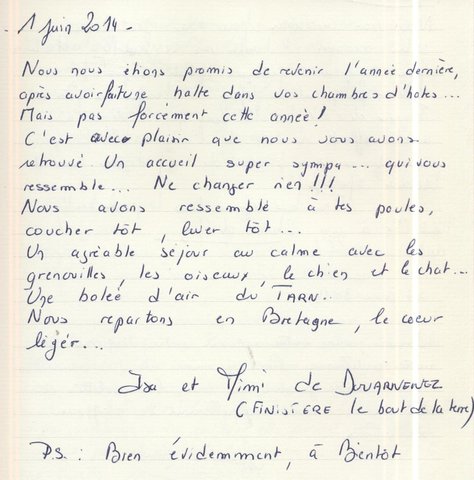 - 1 juin 2014 -
Nous nous étions promis de revenir l'année dernière,
après avoir fait une halte dans vos chambres d'hotes...
Mais pas forcément cette année !
C'est avec plaisir que nous vous avons
retrouvé. Un accueil super sympa... qui vous
ressemble... Ne changer rien !!!
Nous avons ressemblé à tes poules,
coucher tôt, lever tôt...
Un agréable séjour au calme avec les
grenouilles, les oiseaux, le chien et le chat...
Une bolée d'air du TARN..
Nous repartons en Bretagne, le coeur
légér...
Isa et Mimi de DOUARNENEZ
(FINISTÈRE le bout de la terre)
P.S. : Bien évidemment, à Bientôt